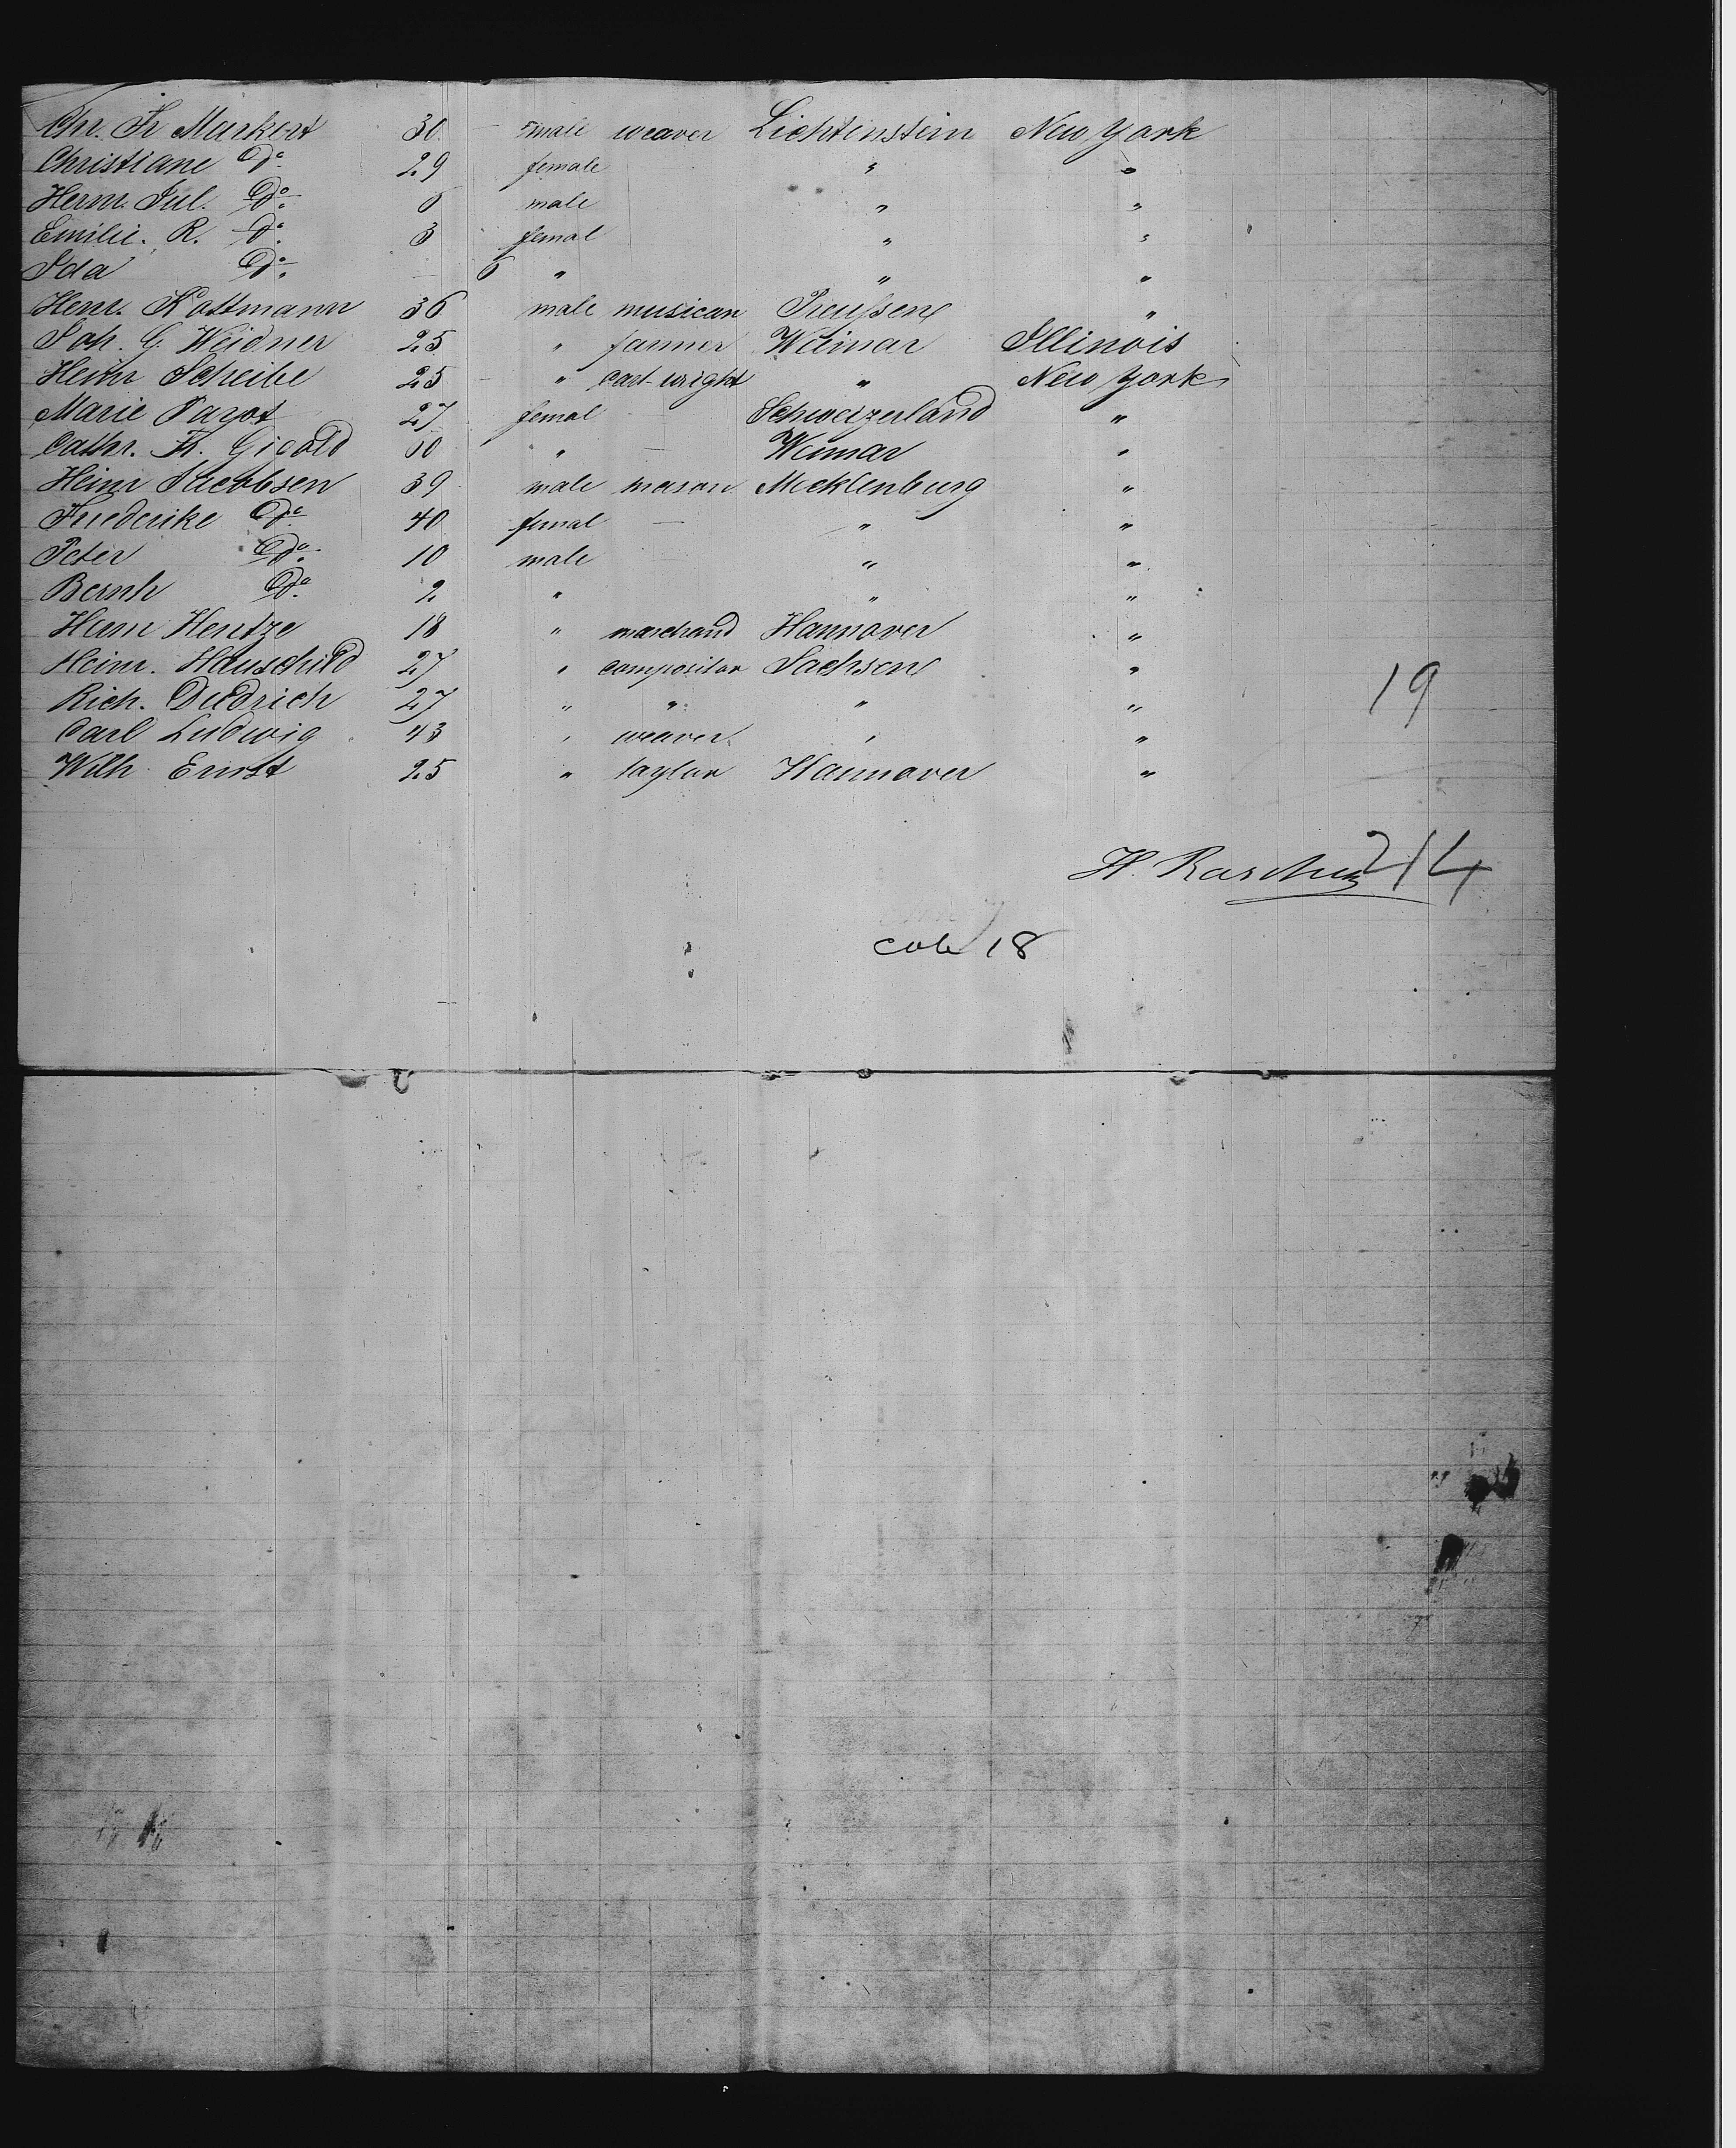 Chr. Fr Markert 30 male weaver Lichtenstein New York
Christiane Do. 29 female " "
Herm. Jul. Do. 6 male " "
Emilie. R. Do. 3 femal " "
Ida Do. - 6 " " "
Henr. Kottmann 36 male musican Preußen "
Joh. G. Weidner 25 " farmer Weimar Illinois
Heinr Scheibe 25 " cart-wright " New York
Marie 27 femal Schweizerland "
Cathr. 60 " - Weimar "
Heinr Jacobsen 39 male mason Mecklenburg "
Friederike Do. 40 femal - " "
Peter Do. 10 male " "
Bernh Do. 2 " " "
Herm Hentze 18 " marchand Hannover "
Heinr. Hauschild 27 " compositor Sachsen "
Rich. Diedrich 27 " " " "
19
Carl Ludwig 43 " weaver " "
Wilh. Ernst 25 " taylor Hannover "
H. 214
18